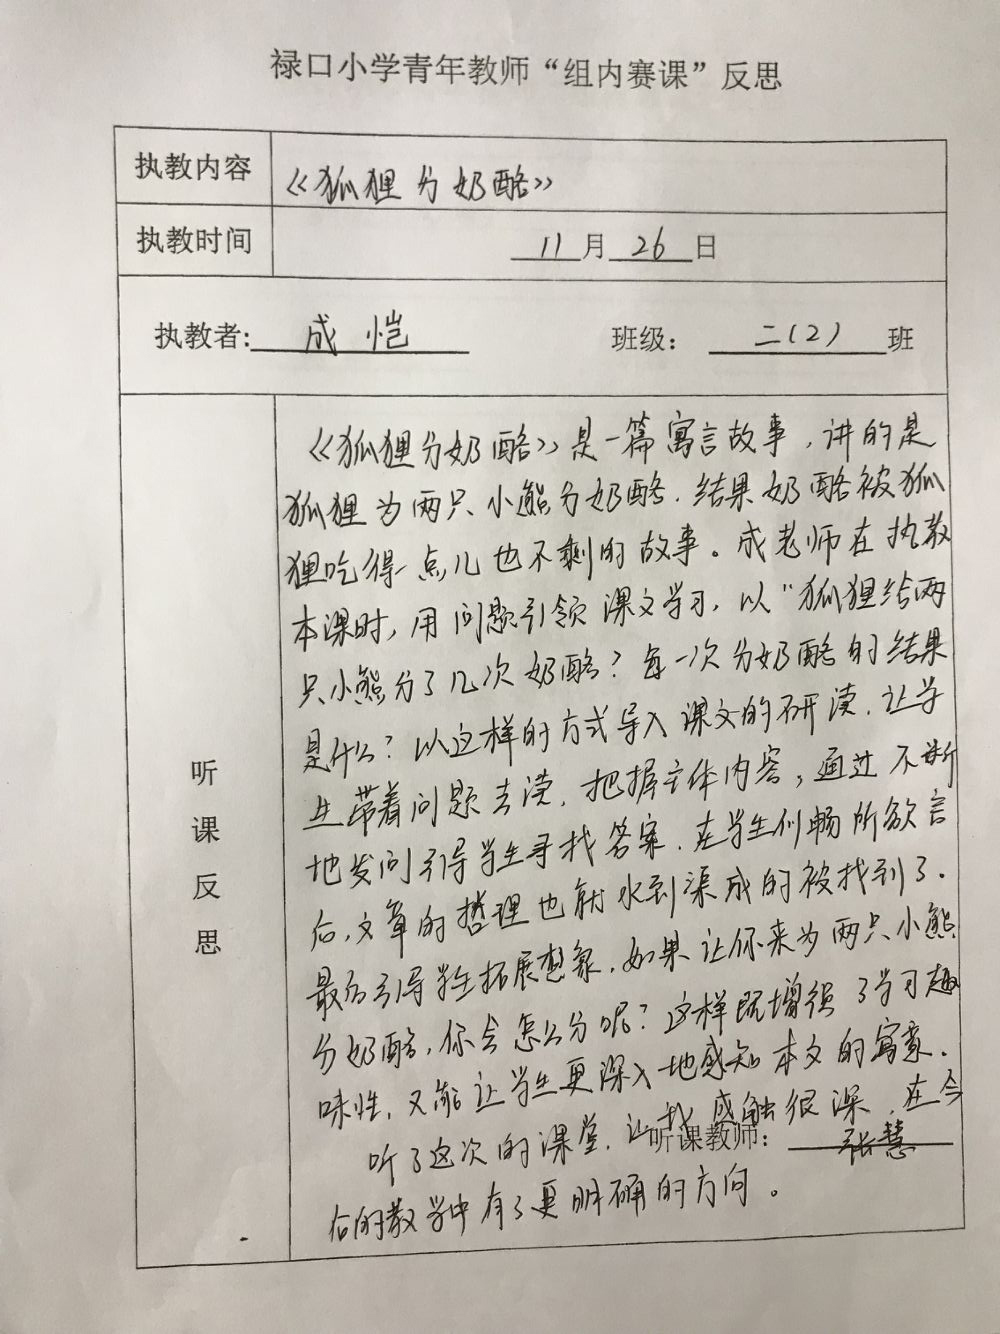 禄口小学青年教师“组内赛课”反思
执教内容 《狐狸分奶酪》
执教时间 11月26日
执教者: 成恺 班级: 二(2)班
听课反思
《狐狸分奶酪》是一篇寓言故事，讲的是
狐狸为两只小熊分奶酪.结果奶酪被狐
狸吃得一点儿也不剩的故事。成老师在执教
本课时,用问题引领课文学习,以“狐狸给两
只小熊分了几次奶酪?每一次分奶酪的结果
是什么?以这样的方式导入课文的研读.让学
生带着问题去读.把握主体内容,通过不断
地发问引导学生寻找答案.在学生们畅所欲言
后,文章的哲理也就水到渠成的被找到了.
最后引导学生拓展想象.如果让你来为两只小熊
分奶酪,你会怎么分呢?这样既增强了学习趣
味性,又能让学生更深入地感知本文的寓意.
听了这次的课堂.让我感触很深.在今
听课教师: 张慧
后的教学中有了更明确的方向。